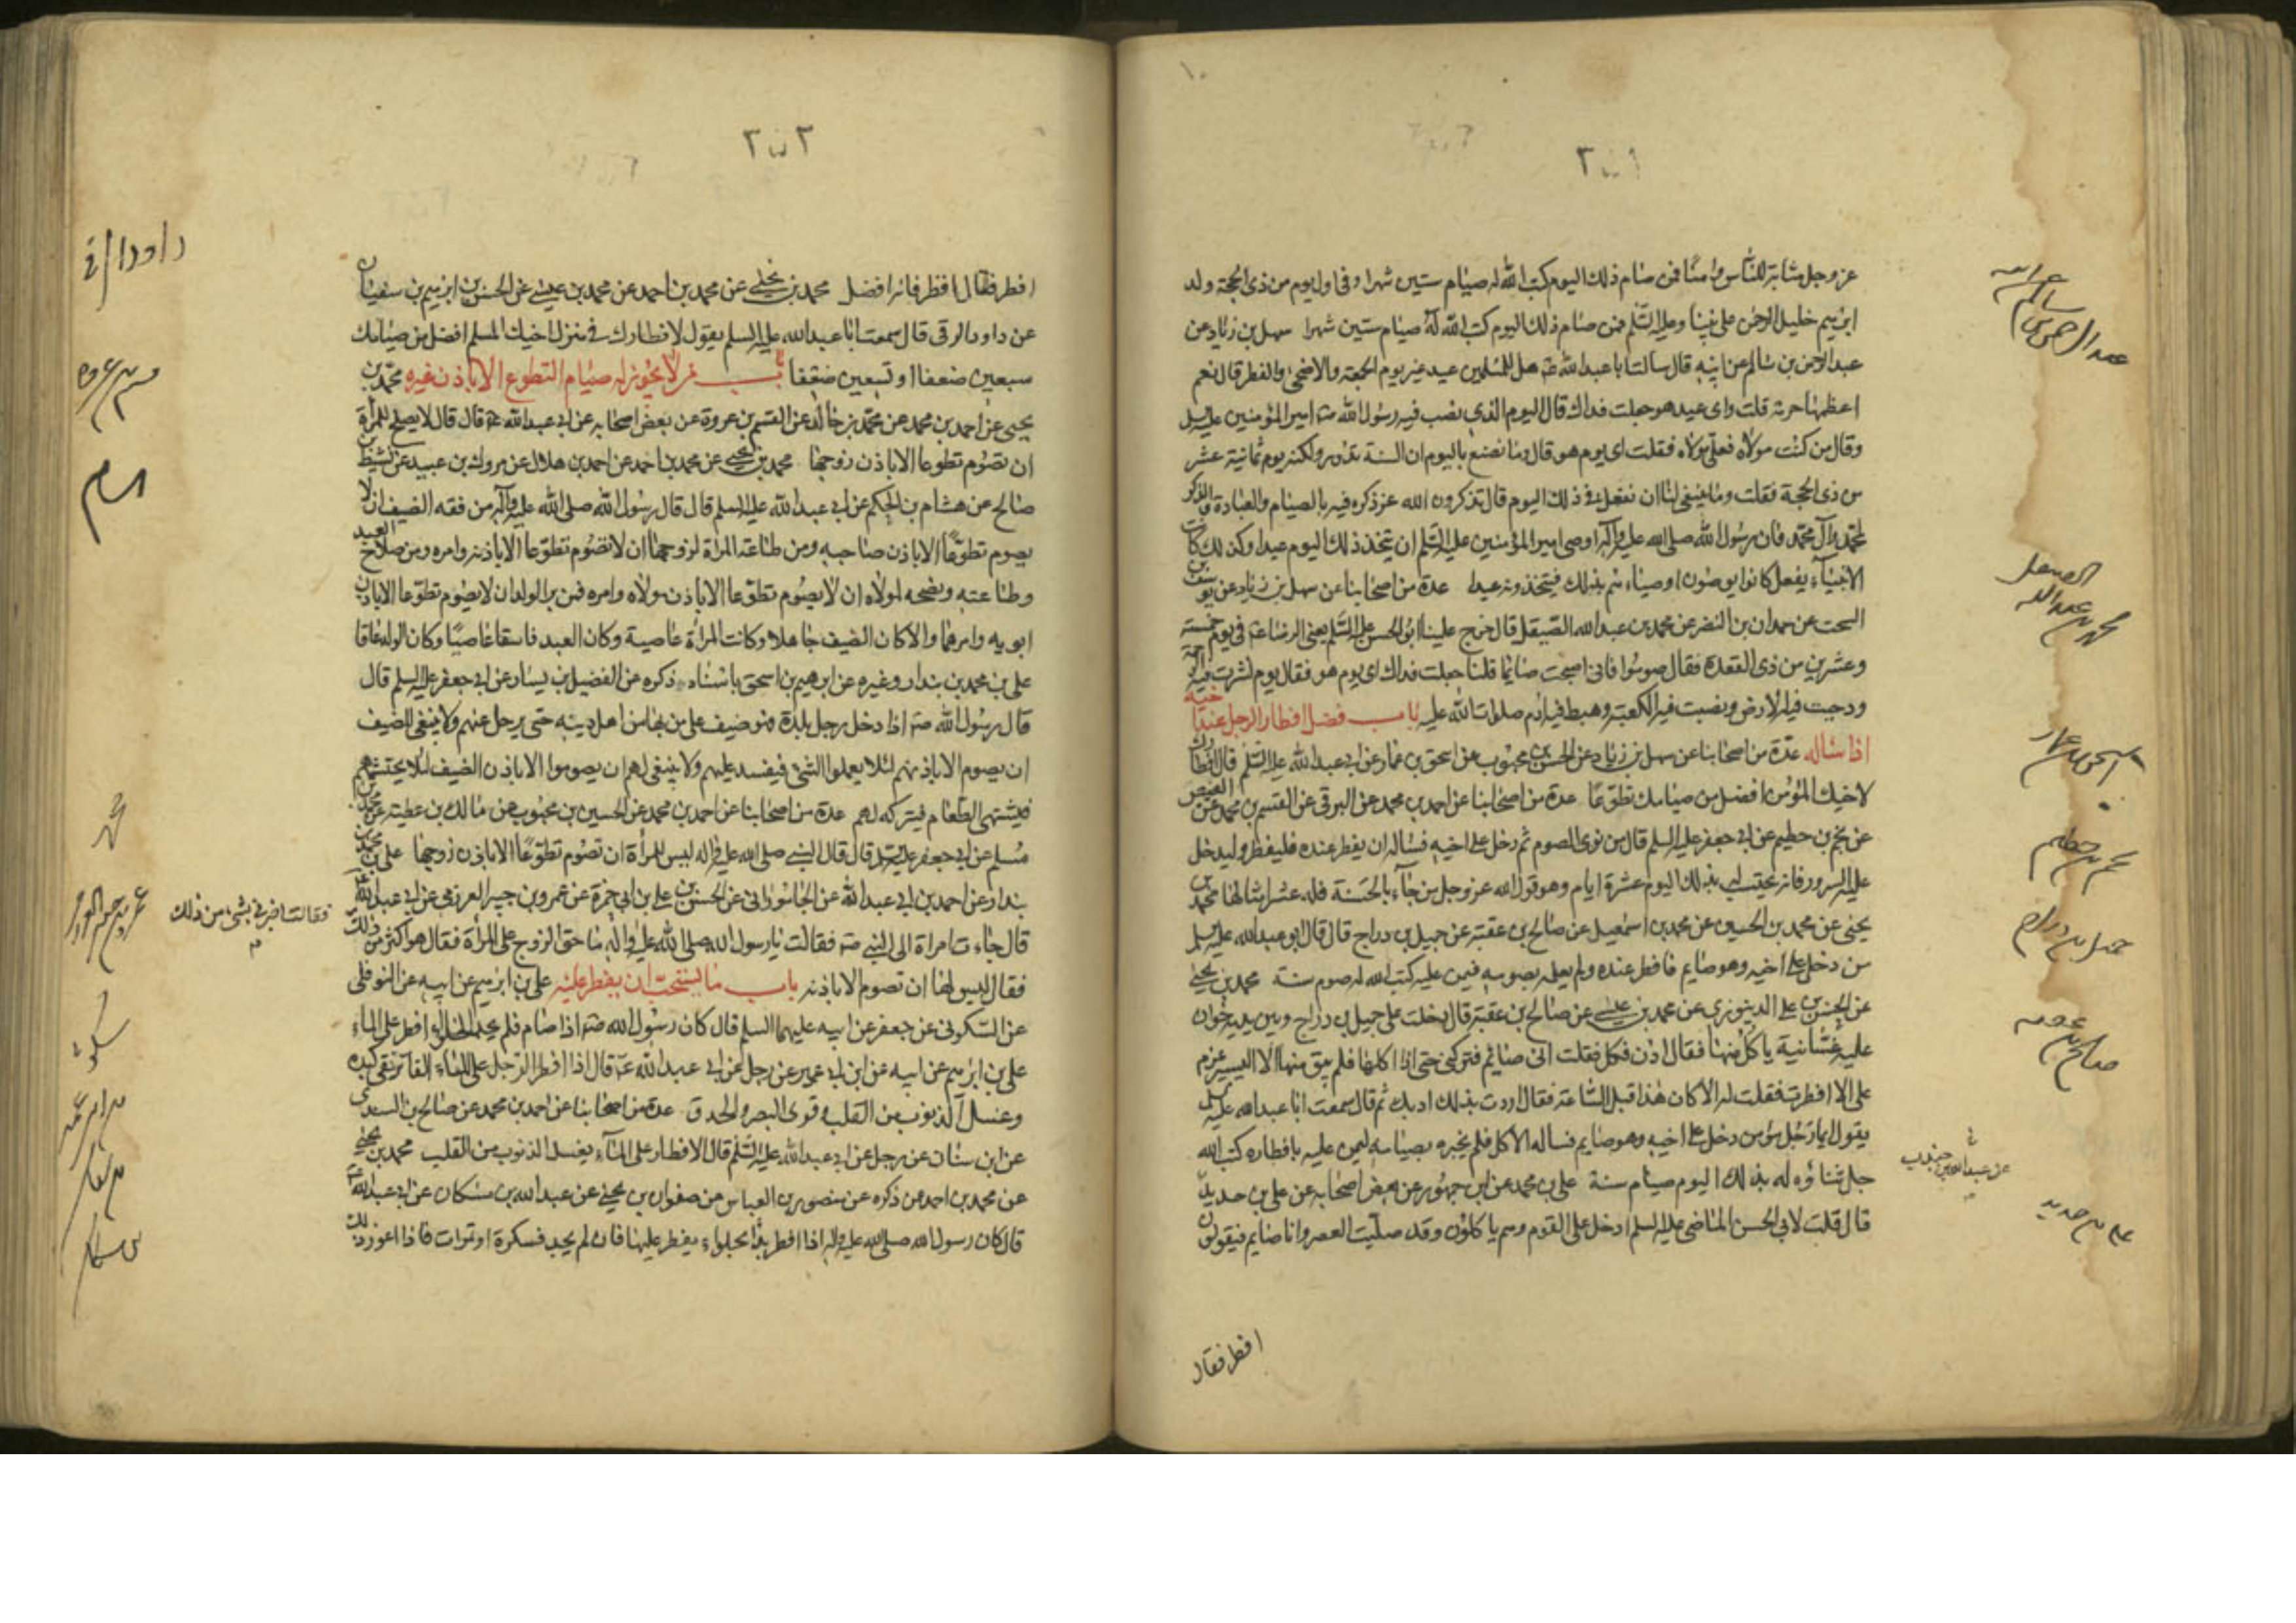 عز وجل مثابة للناس وامنا فمن صام ذلك اليوم كتب الله له صيام ستين شهرا وفى اول يوم من ذى الحجة ولد
ابرهيم خليل الرحمن على نبينا وعليه السلم فمن صام ذلك اليوم كتب الله له صيام ستين شهرا سهل بن زياد عن
عبد الرحمن بن سالم عن ابيه قال سالت ابا عبد الله ع هل للمسلمين عيد غير يوم الجمعة والاضحى والفطر قال نعم
اعظمها حرمة قلت واى عيد هو جعلت فداك قال اليوم الذى نصب فيه رسول الله ص امير المؤمنين عليه السلم
وقال من كنت مولاه فعلى مولاه فقلت اى يوم هو قال وما تصنع باليوم ان السنة تدور ولكنه يوم ثمانية عشر
من ذى الحجة فقلت وما ينبغى لنا ان نفعل فى ذلك اليوم قال تذكرون الله عز ذكره فيه بالصيام والعبادة والذكر
لمحمد وآل محمد فان رسول الله صلى الله عليه وآله اوصى امير المؤمنين عليه السلم ان يتخذ ذلك اليوم عيدا وكذلك كانت
الانبياء يفعل كانوا يوصون اوصياءهم بذلك فيتخذونه عيدا عدة من اصحابنا عن سهل بن زياد عن يوسف بن
السخت عن حمدان بن النضر عن محمد بن عبد الله الصيقل قال خرج علينا ابو الحسن عليه السلم يعنى الرضا ع فى يوم خمسة
وعشرين من ذى القعدة فقال صوموا فانى اصبحت صائما قلنا جعلت فداك اى يوم هو فقال يوم نشرت فيه الرحمة
ودحيت فيه الارض ونصبت فيه الكعبة وهبط فيه ادم صلوات الله عليه باب فضل افطار الرجل عند اخيه
اذا ساله عدة من اصحابنا عن سهل بن زياد عن الحسن بن محبوب عن اسحق بن عمار عن ابى عبد الله عليه السلم قال افطارك
لاخيك المؤمن افضل من صيامك تطوعا عدة من اصحابنا عن احمد بن محمد عن البرقى عن القسم بن محمد عن العيص
عن نجم بن حطيم عن ابى جعفر عليه السلم قال من نوى الصوم ثم دخل على اخيه فساله ان يفطر عنده فليفطر وليدخل
عليه السرور فانه يحتسب له بذلك اليوم عشرة ايام وهو قول الله عز وجل من جاء بالحسنة فله عشر امثالها محمد بن
يحيى عن محمد بن الحسين عن محمد بن اسمعيل عن صالح بن عقبة عن جميل بن دراج قال قال ابو عبد الله عليه السلم
من دخل على اخيه وهو صايم فافطر عنده ولم يعلمه بصومه فيمن عليه كتب الله له صوم سنة محمد بن يحيى
عن الحسن بن على الدينورى عن محمد بن عيسى عن صالح بن عقبة قال دخلت على جميل بن دراج وبين يديه خوان
عليه غسانية ياكل منها فقال ادن فكل فقلت انى صائم فتركنى حتى اذا اكلها فلم يبق منها الا اليسير عزم
على الا افطرت فقلت له الا كان هذا قبل الساعة فقال اردت بذلك ادبك ثم قال سمعت ابا عبد الله عليه السلم
يقول ايما رجل مؤمن دخل على اخيه وهو صايم فساله الاكل فلم يخبره بصيامه ليمن عليه بافطاره كتب الله
جل ثناؤه له بذلك اليوم صيام سنة على بن محمد عن ابن جمهور عن بعض اصحابه عن على بن حديد
قال قلت لابى الحسن الماضى عليه السلم ادخل على القوم وهم ياكلون وقد صليت العصر وانا صايم فيقولون
افطر فقال
عبد الرحمن بن سالم عن ابيه
محمد بن عبد الله الصيقل
اسحق بن عمار
نجم بن حطيم
جميل بن دراج
صالح بن عقبه
عن عبد الله بن جندب
على بن حديد
٣٠٢
افطر فقال افطر فانه افضل محمد بن يحيى عن محمد بن احمد عن محمد بن عيسى عن الحسن بن ابرهيم بن سفيان
عن داود الرقى قال سمعت ابا عبد الله عليه السلم يقول لافطارك فى منزل اخيك المسلم افضل من صيامك
سبعين ضعفا او تسعين ضعفا باب من لا يجوز له صيام التطوع الا باذن غيره محمد بن
يحيى عن احمد بن محمد عن محمد بن خالد عن القسم بن عروة عن بعض اصحابه عن ابى عبد الله ع قال قال لا يصلح للمرأة
ان تصوم تطوعا الا باذن زوجها محمد بن يحيى عن محمد بن احمد عن احمد بن هلال عن مروك بن عبيد عن نشيط بن
صالح عن هشام بن الحكم عن ابى عبد الله عليه السلم قال قال رسول الله صلى الله عليه وآله من فقه الضيف ان لا
يصوم تطوعا الا باذن صاحبه ومن طاعة المرأة لزوجها ان لا تصوم تطوعا الا باذنه وامره ومن صلاح العبد
وطاعته ونصحه لمولاه ان لا يصوم تطوعا الا باذن مولاه وامره ومن بر الولد ان لا يصوم تطوعا الا باذن
ابويه وامرهما والا كان الضيف جاهلا وكانت المرأة عاصية وكان العبد فاسقا عاصيا وكان الولد عاقا
على بن محمد بن بندار وغيره عن ابرهيم بن اسحق باسناد ذكره عن الفضيل بن يسار عن ابى جعفر عليه السلم قال
قال رسول الله ص اذا دخل رجل بلدة فهو ضيف على من بها من اهل دينه حتى يرحل عنهم ولا ينبغى للضيف
ان يصوم الا باذنهم لئلا يعملوا الشئ فيفسد عليهم ولا ينبغى لهم ان يصوموا الا باذن الضيف لئلا يحتشمهم
فيشتهى الطعام فيتركه لهم عدة من اصحابنا عن احمد بن محمد عن الحسين بن محبوب عن مالك بن عطية عن محمد بن
مسلم عن ابى جعفر عليه السلم قال قال النبى صلى الله عليه وآله ليس للمرأة ان تصوم تطوعا الا باذن زوجها على بن محمد بن
بندار عن احمد بن ابى عبد الله عن الجاموراني عن الحسن بن على بن ابى حمزة عن عمرو بن جبير العرزمى عن ابى عبد الله ع
قال جاءت امراة الى النبى ص فقالت يا رسول الله صلى الله عليه وآله ما حق الزوج على المرأة فقال هو اكثر من ذلك
فقال ليس لها ان تصوم الا باذنه باب ما يستحب ان يفطر عليه على بن ابرهيم عن ابيه عن النوفلى
عن السكونى عن جعفر عن ابيه عليهما السلم قال كان رسول الله ص اذا صام فلم يجد الحلواء افطر على الماء
على بن ابرهيم عن ابيه عن ابن ابى عمير عن رجل عن ابى عبد الله ع قال اذا افطر الرجل على الماء الفاتر نقى كبده
وغسل الذنوب من القلب وقوى البصر والحدق عدة من اصحابنا عن احمد بن محمد عن صالح بن السندى
عن ابن سنان عن رجل عن ابى عبد الله عليه السلم قال الافطار على الماء يغسل الذنوب من القلب محمد بن يحيى
عن محمد بن احمد عن ذكره عن منصور بن العباس عن صفوان بن يحيى عن عبد الله بن مسكان عن ابى عبد الله ع
قال كان رسول الله صلى الله عليه وآله اذا افطر بدأ بحلواء يفطر عليها فان لم يجد فسكرة او تمرات فاذا اعوز ذلك
داود الرقى
هشام
محمد
فقالت اخبرنى بشئ من ذلك